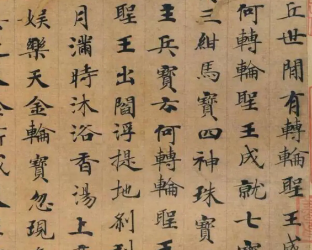 丘世間有轉輪聖王成
何轉輪聖王成就七
三紺馬寶四神珠寶
主兵寶云何轉輪聖王
聖王出閻浮提地剎利
月滿時沐浴香湯上
娛樂天金輪寶忽現